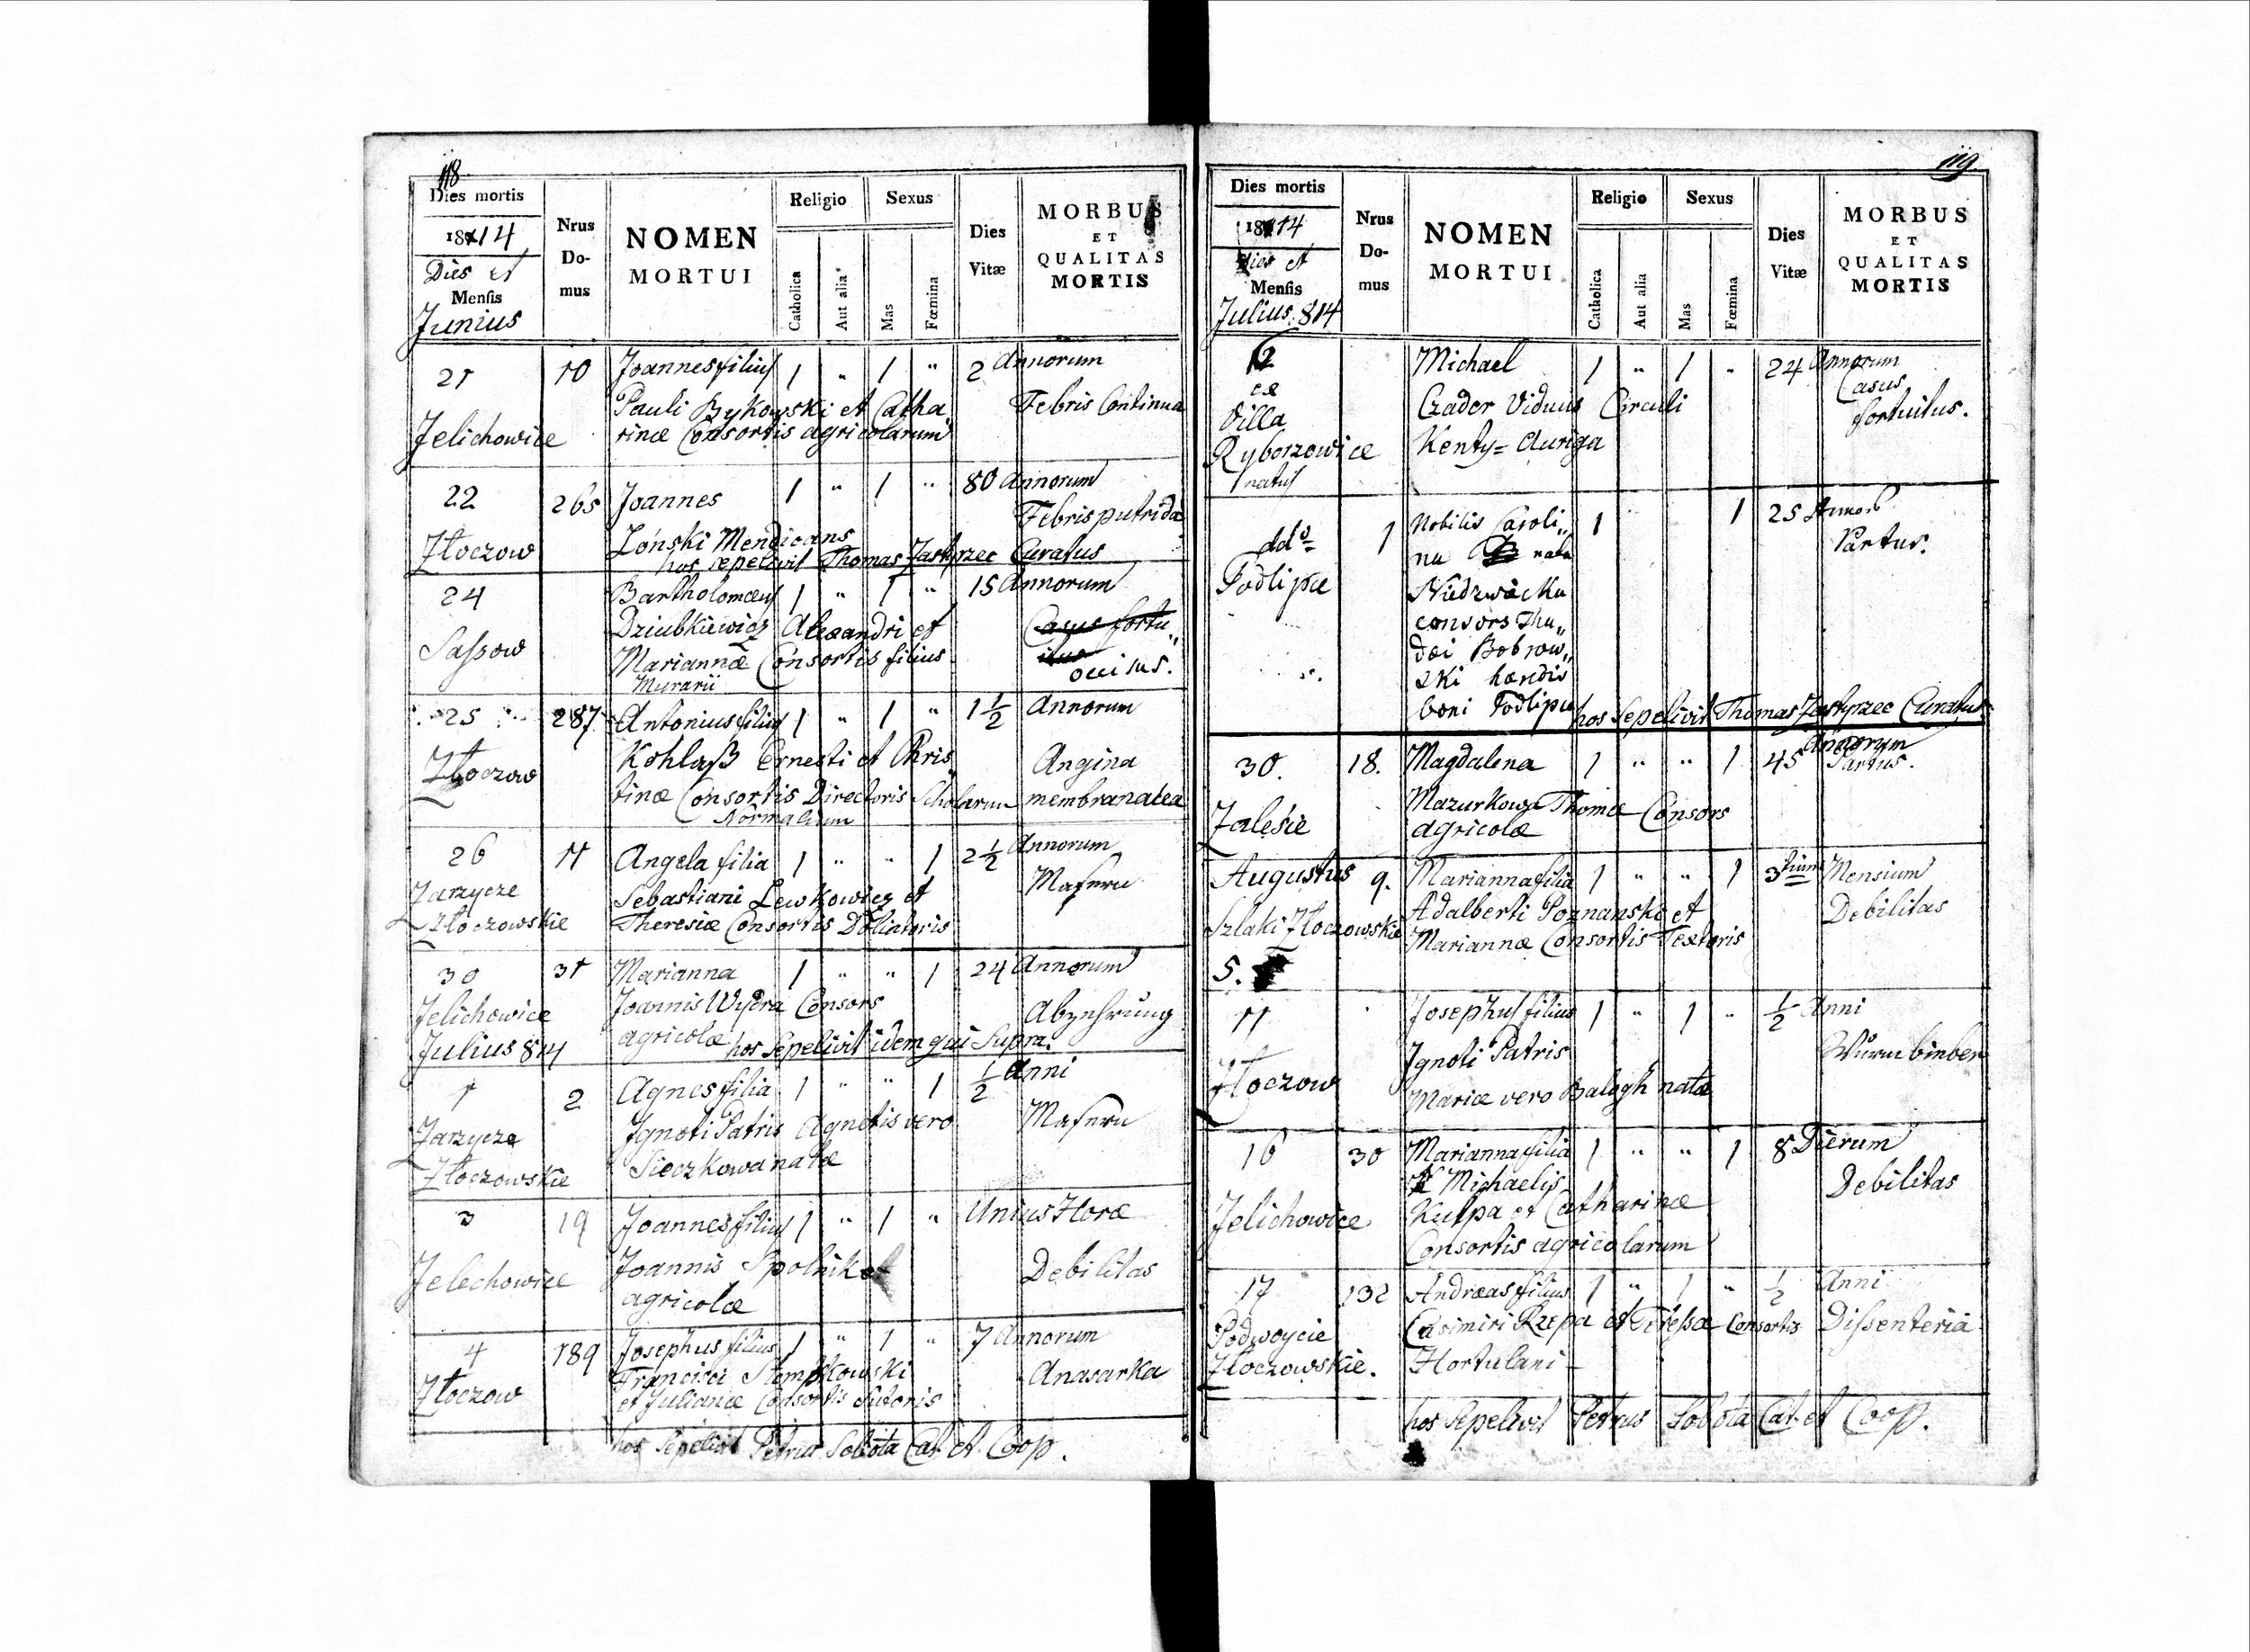 118
Dies mortis
1814
Dies et
Mensis
Junius
Nrus
Do-
mus
NOMEN
MORTUI
Religio
Catholica
Aut alia
Sexus
Mas
Fœmina
Dies
Vitæ
MORBUS
ET
QUALITAS
MORTIS
21 10 Joannes filius 1 " 1 " 2 Annorum
Pauli Bykowski et Catha Febris Continua
Jelichowice rinæ Consortis agricolarum
22 265 Joannes 1 " 1 " 80 Annorum
Febris putrida
Złoczow Łoński Mendicans
hos sepelivit Thomas Jastrzec Curatus
24 Bartholomæus 1 " 1 " 15 Annorum
Dziubkiewicz Alexandri et Casus fortu„
Sassow Mariannæ Consortis filius itus occisus.
Murarii
25 287 Antonius filius 1 " 1 " 1 1/2 Annorum
Kohlaß Ernesti et Chris Angina
Złoczow tinæ Consortis Directoris Scholarum membranacea
Normalium
26 11 Angela filia 1 " " 1 2 1/2 Annorum
Zarzycze Sebastiani Lewkowicz et Masern
Złoczowskie Theresiæ Consortis Doliatoris
30 31 Marianna 1 " " 1 24 Annorum
Jelichowice Joannis Wydra Consors Abzehrung
Julius 814 agricolæ hos Sepelivit idem qui Supra.
1 2 Agnes filia 1 " " 1 1/2 Anni
Zarzycze Ignoti Patris Agnetis vero Masern
Złoczowskie Sieczkowa natæ
3 19 Joannes filius 1 " 1 " Unius Horæ
Jelechowice Joannis Spolnik et Debilitas
agricolæ
4 189 Josephus filius 1 " 1 " 7 Annorum
Francisci Stempkowski Anasarka
Złoczow et Julianæ Consortis Sutoris
hos Sepelivit Petrus Sobota Cat. et Coop.
119
Dies mortis
1814
Dies et
Mensis
Julius 814
Nrus
Do-
mus
NOMEN
MORTUI
Religio
Catholica
Aut alia
Sexus
Mas
Fœmina
Dies
Vitæ
MORBUS
ET
QUALITAS
MORTIS
12 Michael 1 " 1 " 24 Annorum
ex Casus
Villa Czader Viduus Circuli fortuitus.
Ryborzowice Kenty= Auriga
natus
ddo 1 Nobilis Caroli„ 1 1 25 Annor
na nata Partus.
Podlipce Niedzwiecka
consors Tha„
dei Bobrow„
ski hæredis
boni Podlipce hos Sepelivit Thomas Jastrzec Curatus
30. 18. Magdalena 1 " " 1 45 Annorum
Partus.
Mazurkowa Thomæ Consors
Zalesie agricolæ
Augustus 9. Marianna filia 1 " " 1 3 trium Mensium
Adalberti Poznanski et Debilitas
Szlaki Złoczowskie Mariannæ Consortis Textoris
5.
11 Josephus filius 1 " 1 " 1/2 Anni
Ignoti Patris
Złoczow Mariæ vero Balogh natæ
16 30 Marianna filia 1 " " 1 8 Dierum
Michaelis Debilitas
Jelichowice Kulpa et Catharinæ
Consortis agricolarum
17 132 Andræas filius 1 " 1 " 1/2 Anni
Podwoycie Casimiri Rzepa et Teressæ Consortis Dissenteria
Złoczowskie. Hortulani
hos Sepelivit Petrus Sobota Cat. et Coop.